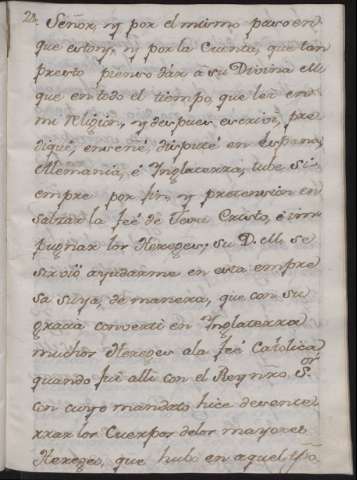 24. Señor, y por el mismo paso en
que estoy, y por la Cuenta, que tan
presto pienso dár a su Divina Mg.
que en todo el tiempo, que leí en
mi religion, y despues escriví, pre
diqué, enseñé, disputé en España,
Alemania, é Inglaterra, tube Si-
empre por fin, y pretension en
salzar la feé de Jesu Cristo, é im-
pugnar los Hereges; su D. Mg. se
sirvió ayudarme en esta empre
sa suya, de manera, que con su
gracia convertí en Inglaterra
muchos Hereges a la feé Católica
quando fui alli con el Rey nrō. Sor.
con cuyo mandato hice desente-
rrar los Cuerpos de los mayores
Hereges, que hubo en aquel tpō.